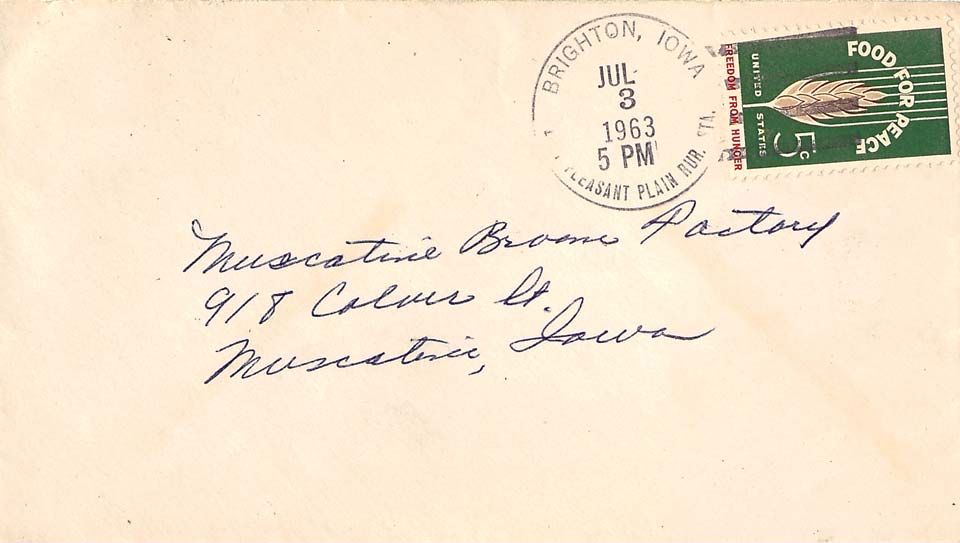 BRIGHTON, IOWA
JUL
3
1963
5 PM
PLEASANT PLAIN RUR. STA.
FOOD FOR PEACE
UNITED STATES
5c
FREEDOM FROM HUNGER
Muscatine Broom Factory
918 Colver St.
Muscatine, Iowa